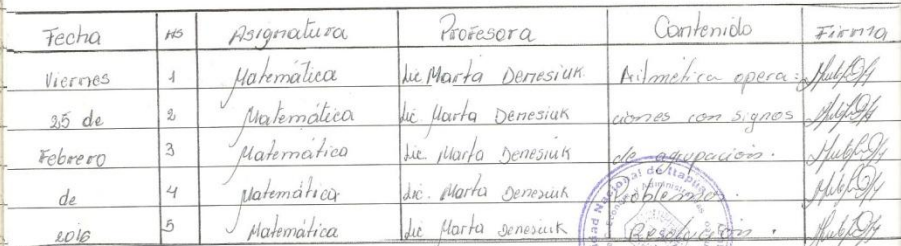 Fecha HS Asignatura Profesora Contenido Firma
Viernes 1 Matemática Lic Marta Denesiuk Aritmética opera:
25 de 2 Matemática Lic. Marta Denesiuk ciones con signos
Febrero 3 Matemática Lic. Marta Denesiuk de agupación.
de 4 Matemática Lic. Marta Denesiuk Problemas.
2016 5 Matemática Lic Marta Denesiuk Resolución.
Nacional de Itapúa